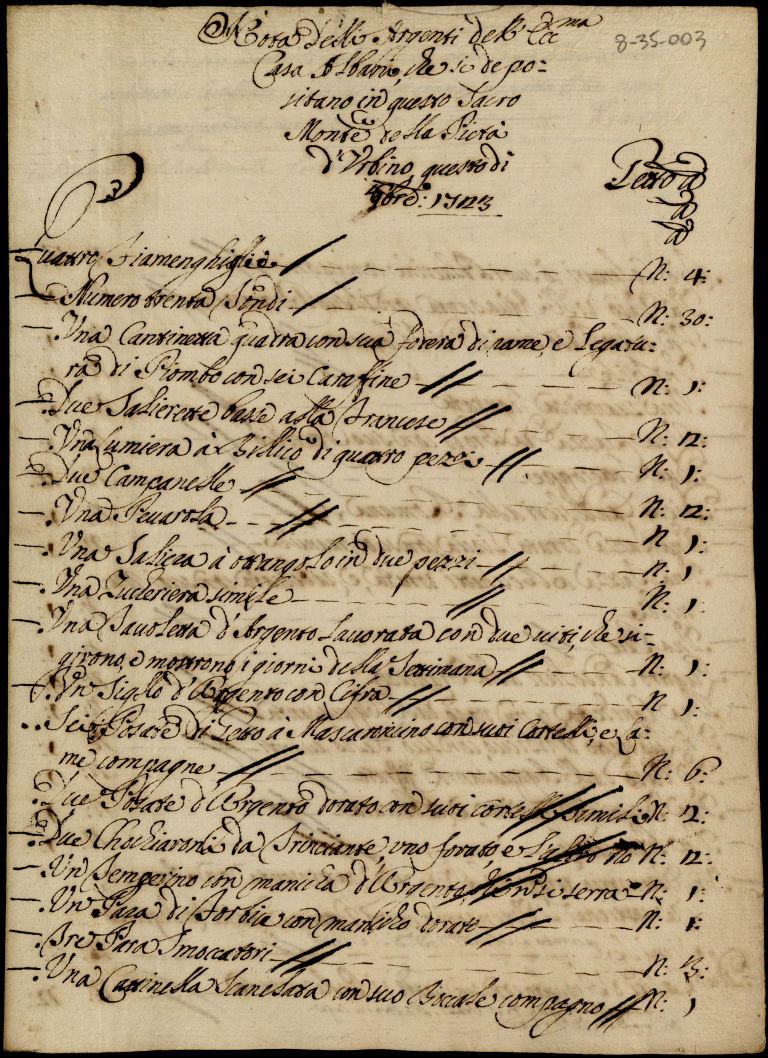 Nota delli Argenti dell'Ecc.ma
8-35-003
Casa Albani, che si depo=
sitano in questo Sacro
Monte della Pietà
d'Urbino questo di
9bre: 1723
Quattro Fiamenghiglie N: 4:
Numero trenta Tondi N: 30:
Una Cantinetta quadra con sua fodera di rame, e Legatu:
ra di Piombo con sei Caraffine N: 1:
Due Salierette basse alla Francese N: 2:
Una lumiera à Billico di quattro pezzi N: 1:
Due Campanelle N: 2:
Una Pevarola N 1:
Una Saliera à ottangolo in due pezzi N: 1
Una Zuccheriera simile N: 1:
Una Tavoletta d'Argento Lavorata con due viti, che si=
girono, e mostrono i giorni della Settimana N: 1:
Un Sigillo d'Argento con Cifra N 1:
Sei Posate di Getto à Mascaroncino con suoi Cortelli, e La:
me compagne N: 6:
Due Posate d'Argento dorato con suoi cortelli simili N: 2:
Due Chochiaroni da Trinciante, uno forato, e l'altro no N: 2:
Un Temperino con manica d'Argento, serra N: 1:
Un Para di Forbici con manico dorato N: 1:
Tre Para Smoccatori N: 3:
Una Cattinella Scanelata con suo Boccale compagno N: 1